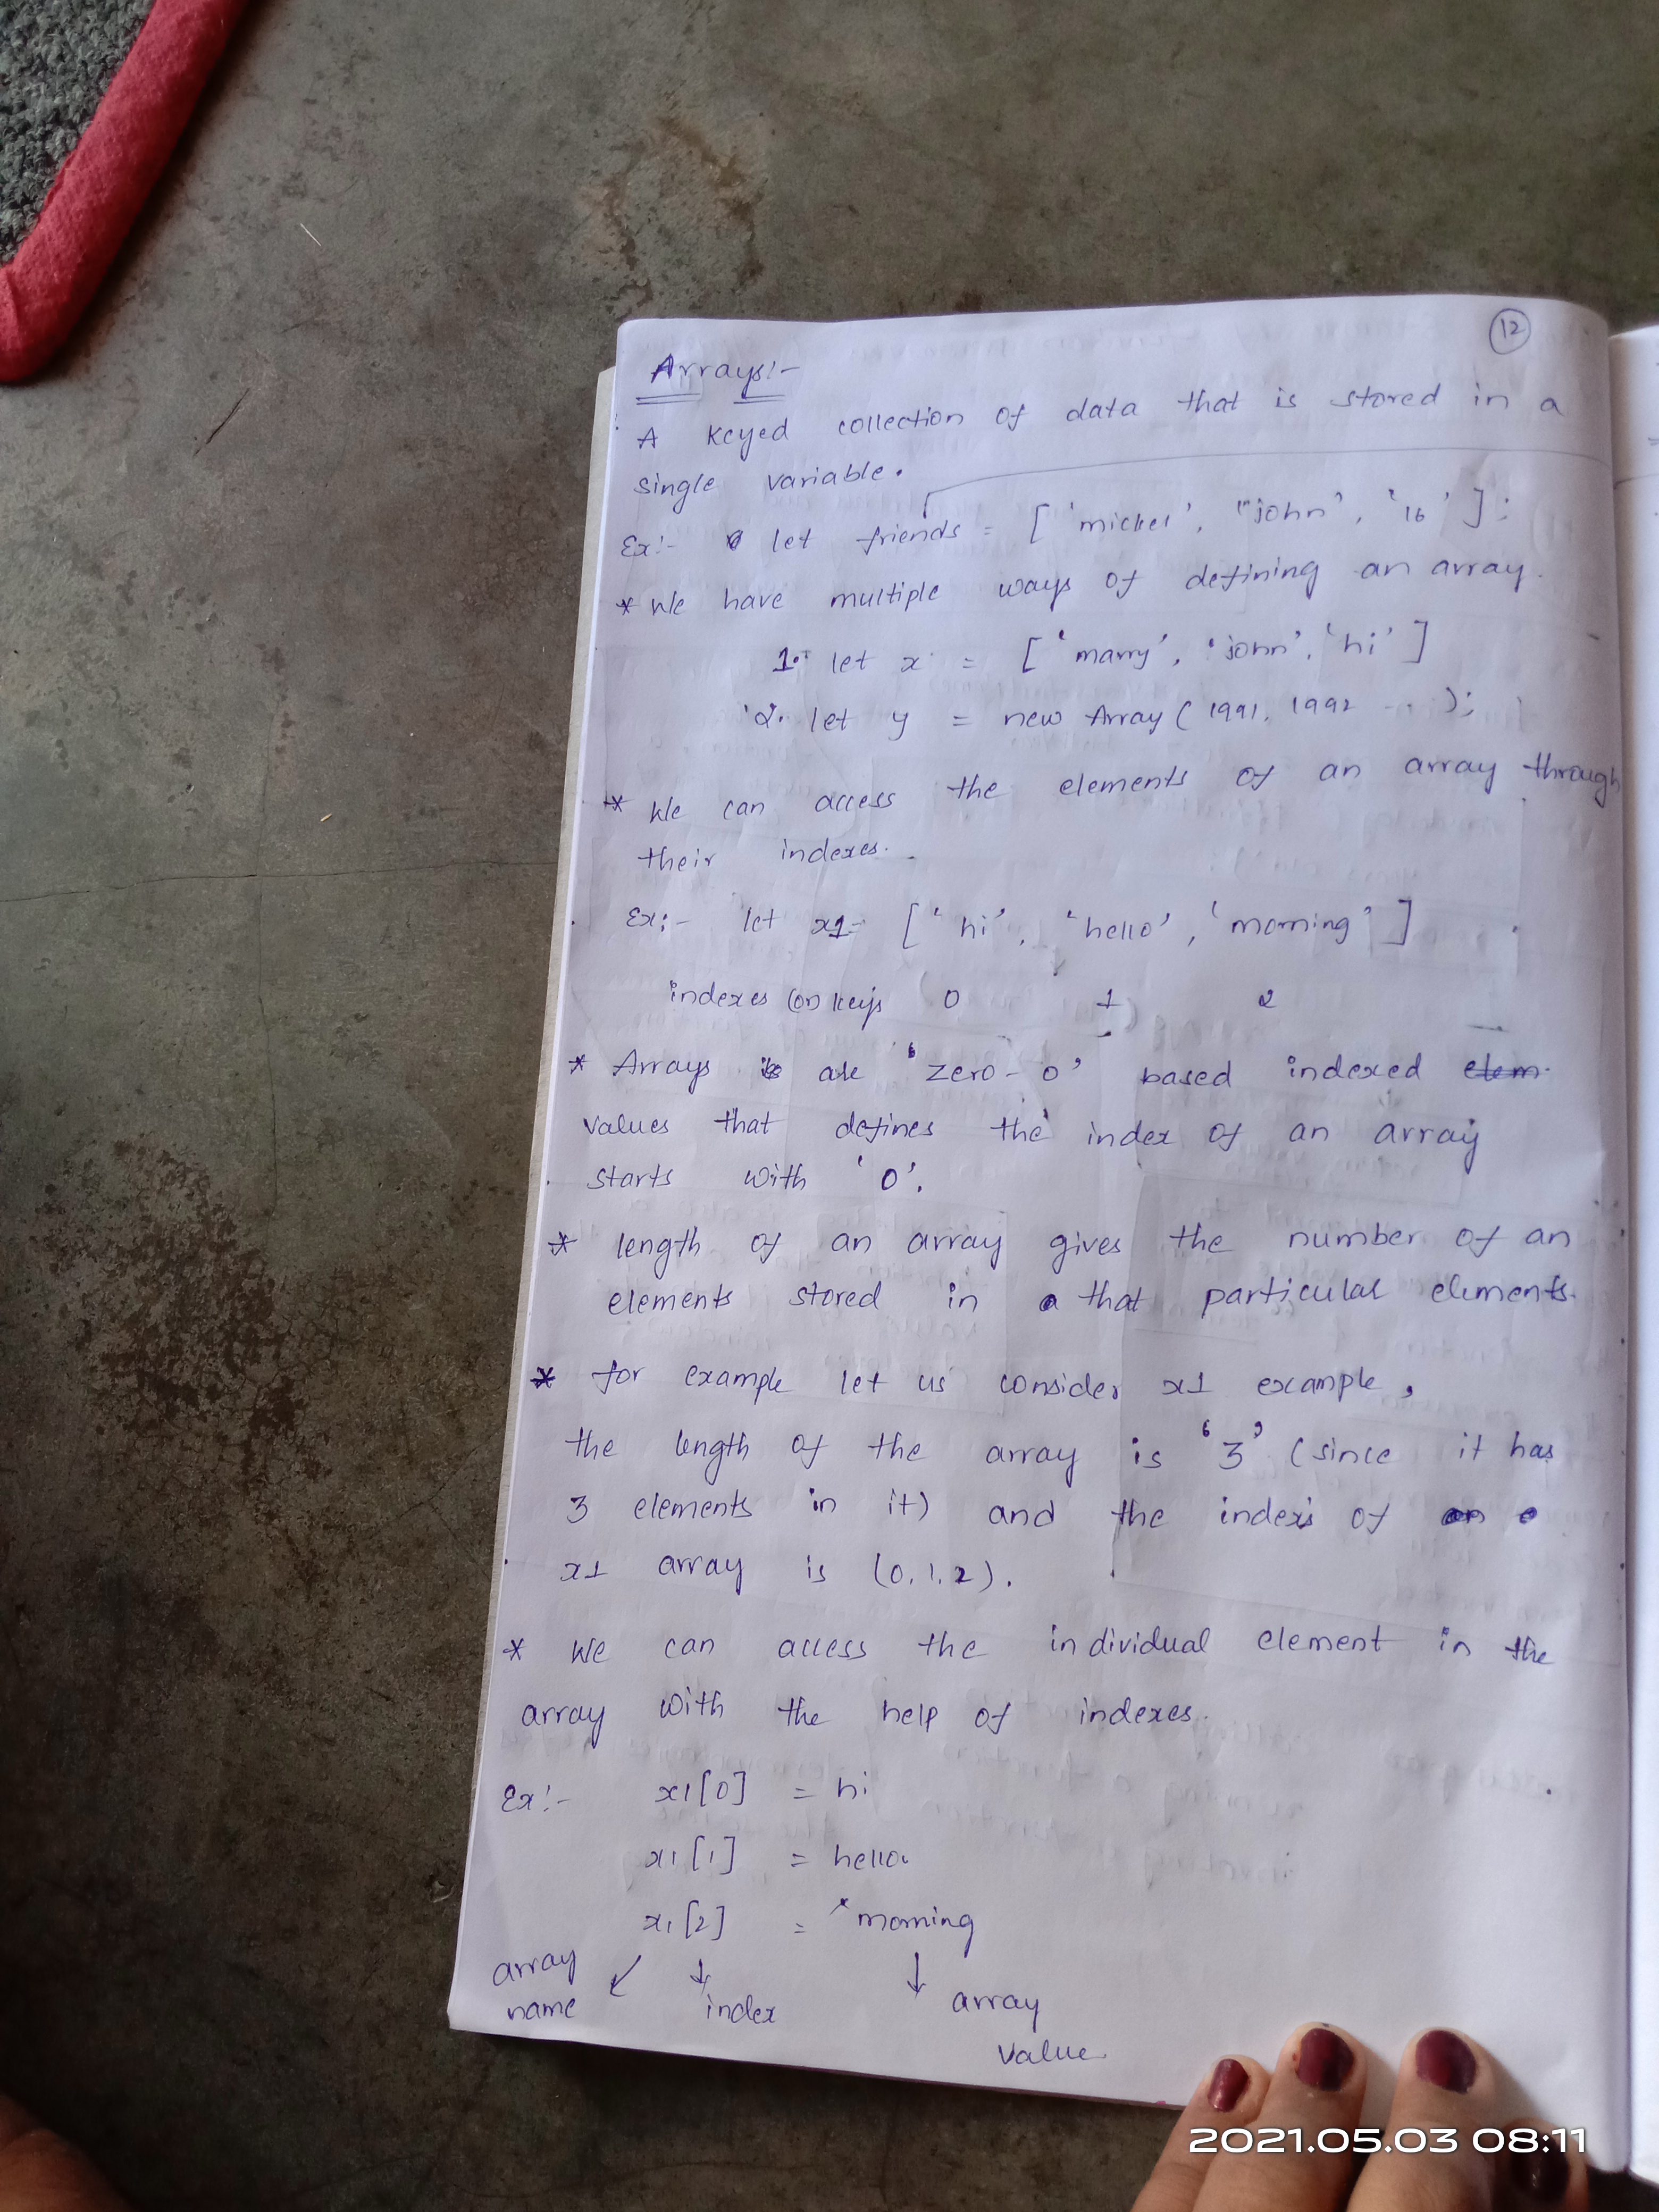 12
Arrays:-
A keyed collection of data that is stored in a
single variable.
Ex:- let friends = ['michel', "john', '16'];
* We have multiple ways of defining an array.
1. let x = ['marry', 'john', 'hi']
2. let y = new Array(1991, 1992 ...);
* We can access the elements of an array through
their indexes.
Ex:- let x1= ['hi', 'hello', 'morning']
indexes (or) keys 0 1 2
* Arrays are 'zero-0' based indexed elem
values that defines the index of an array
starts with '0'.
* length of an array gives the number of an
elements stored in that particular elements.
* for example let us consider x1 example,
the length of the array is '3' (since it has
3 elements in it) and the indexs of
x1 array is (0,1,2).
* We can access the individual element in the
array with the help of indexes.
Ex:- x1[0] = hi
x1[1] = hello
x1[2] = morning
array name
index
array value
2021.05.03 08:11